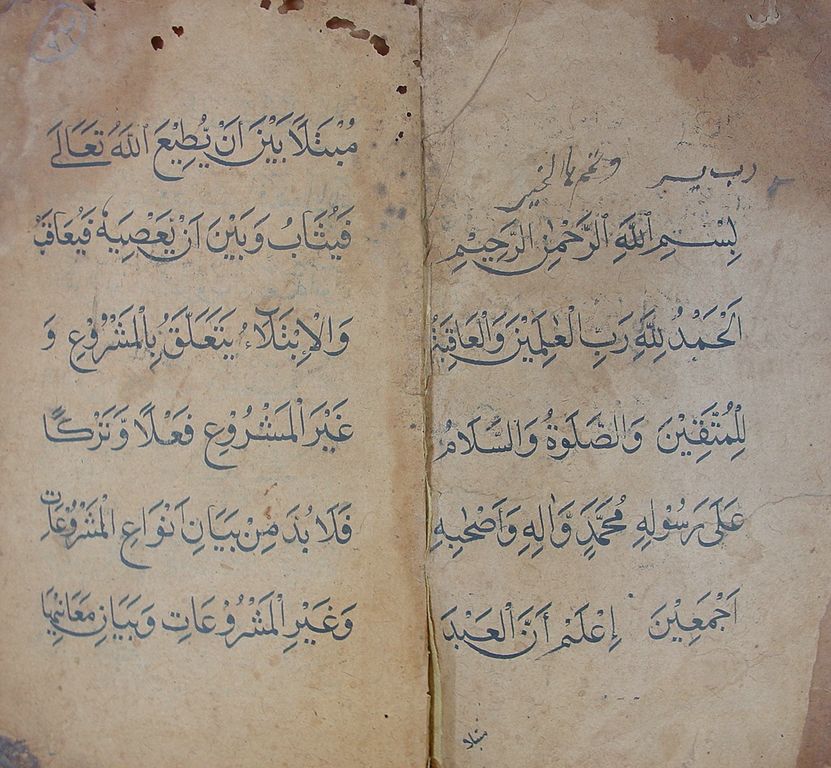 رب يسر وتمم بالخير
بِسْمِ اللّٰهِ الرَّحْمٰنِ الرَّحِيْمِ
اَلْحَمْدُ لِلّٰهِ رَبِّ الْعٰلَمِيْنَ وَالْعَاقِبَةُ
لِلْمُتَّقِيْنَ وَالصَّلٰوةُ وَالسَّلَامُ
عَلٰى رَسُوْلِهٖ مُحَمَّدٍ وَّاٰلِهٖ وَاَصْحٰبِهٖ
اَجْمَعِيْنَ اِعْلَمْ اَنَّ الْعَبْدَ
مبتلا
مُبْتَلًا بَيْنَ اَنْ يُّطِيْعَ اللّٰهَ تَعَالٰى
فَيُثَابُ وَبَيْنَ اَنْ يَّعْصِيَهٗ فَيُعَاقَبُ
وَالْاِبْتَلَاءُ يَتَعَلَّقُ بِالْمَشْرُوْعِ وَ
غَيْرَ الْمَشْرُوْعِ فَعْلًا وَّتَرْكًا
فَلَا بُدَ مِنْ بَيَانِ اَنْوَاعِ الْمَشْرُوْعَاتِ
وَغَيْرِ الْمَشْرُوْعَاتِ وَبَيَانِ مَعَانِيْهَا